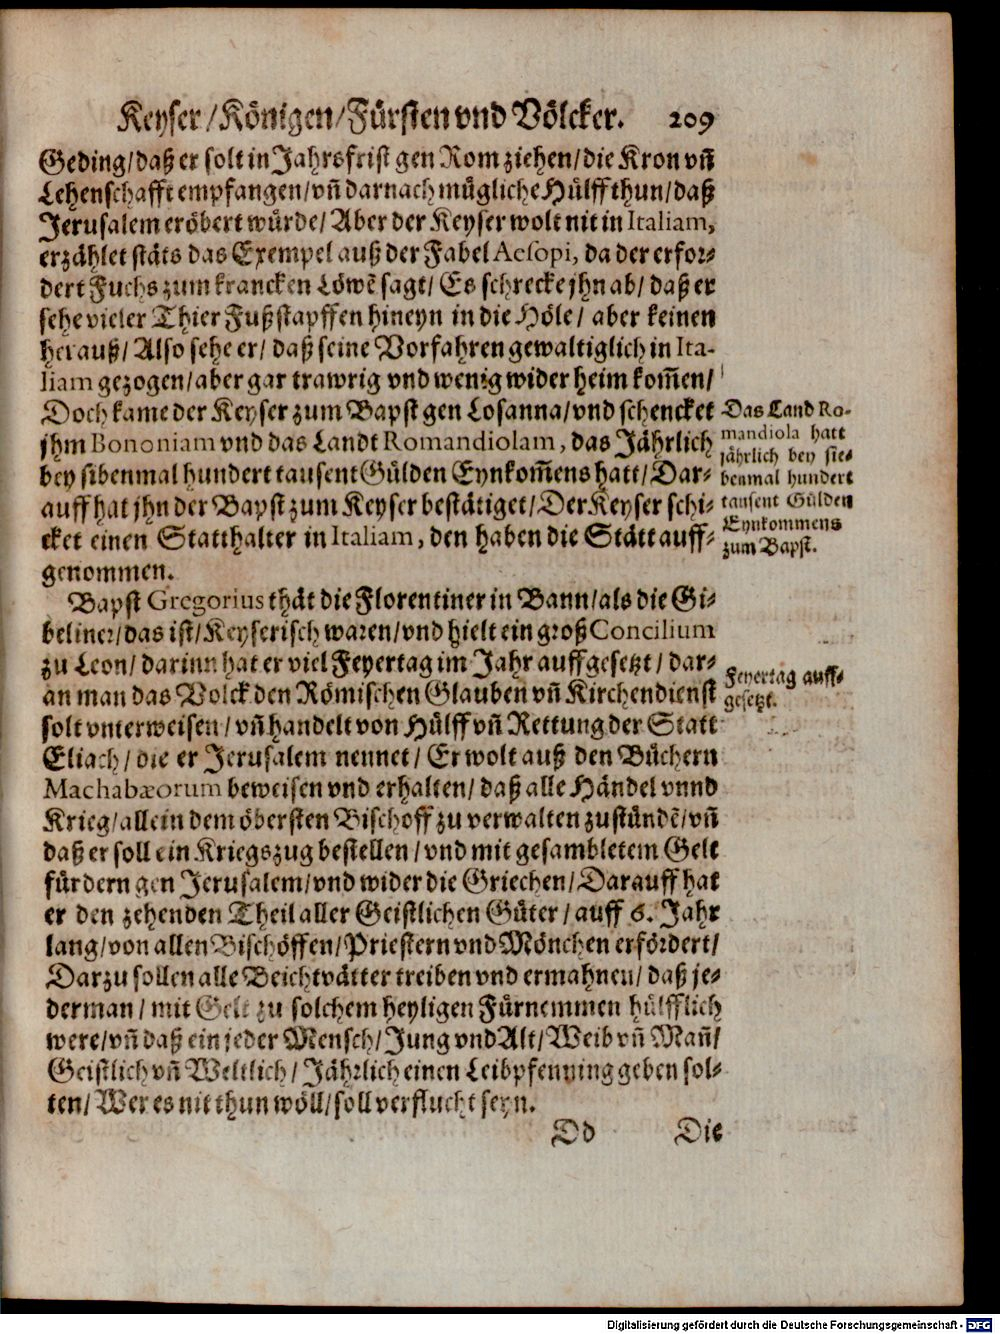 Keyser/Königen/Fürsten vnd Völcker. 209
Geding/daß er solt in Jahrsfrist gen Rom ziehen/die Kron vñ
Lehenschafft empfangen/vñ darnach mügliche Hülff thun/daß
Jerusalem eröbert würde/Aber der Keyser wolt nit in Italiam,
erzählet stäts das Exempel auß der Fabel Aesopi, da der erfor-
dert Fuchs zum krancken Löwẽ sagt/Es schrecke jhn ab/daß er
sehe vieler Thier Fußstapffen hineyn in die Höle/aber keinen
herauß/Also sehe er/daß seine Vorfahren gewaltiglich in Ita-
liam gezogen/aber gar trawrig vnd wenig wider heim kom̃en/
Doch kame der Keyser zum Bapst gen Losanna/vnd schencket
jhm Bononiam vnd das Landt Romandiolam, das Jährlich
bey sibenmal hundert tausent Gülden Eynkom̃ens hatt/Dar-
auff hat jhn der Bapst zum Keyser bestätiget/Der Keyser schi-
cket einen Statthalter in Italiam, den haben die Stätt auff-
genommen.
Das Land Ro-
mandiola hatt
jährlich bey sie-
benmal hundert
tausent Gülden
Eynkommens
zum Bapst.
Bapst Gregorius thät die Florentiner in Bann/als die Gi-
beliner/das ist/Keyserisch waren/vnd hielt ein groß Concilium
zu Leon/darinn hat er viel Feyertag im Jahr auffgesetzt/dar-
an man das Volck den Römischen Glauben vñ Kirchendienst
solt vnterweisen/vñ handelt von Hülff vñ Rettung der Statt
Eliach/die er Jerusalem nennet/Er wolt auß den Büchern
Machabæorum beweisen vnd erhalten/daß alle Händel vnnd
Krieg/allein dem öbersten Bischoff zu verwalten zustündẽ/vñ
daß er soll ein Kriegszug bestellen/vnd mit gesambletem Gelt
fürdern gen Jerusalem/vnd wider die Griechen/Darauff hat
er den zehenden Theil aller Geistlichen Güter/auff 6. Jahr
lang/von allen Bischöffen/Priestern vnd Mönchen erfördert/
Darzu sollen alle Beichtvätter treiben vnd ermahnen/daß je-
derman/mit Gelt zu solchem heyligen Fürnemmen hülfflich
were/vñ daß ein jeder Mensch/Jung vnd Alt/Weib vñ Mañ/
Geistlich vñ Weltlich/Jährlich einen Leibpfenning geben sol-
ten/Wer es nit thun wöll/soll verflucht seyn.
Feyertag auff-
gesetzt.
Dd Die
Digitalisierung gefördert durch die Deutsche Forschungsgemeinschaft - DFG